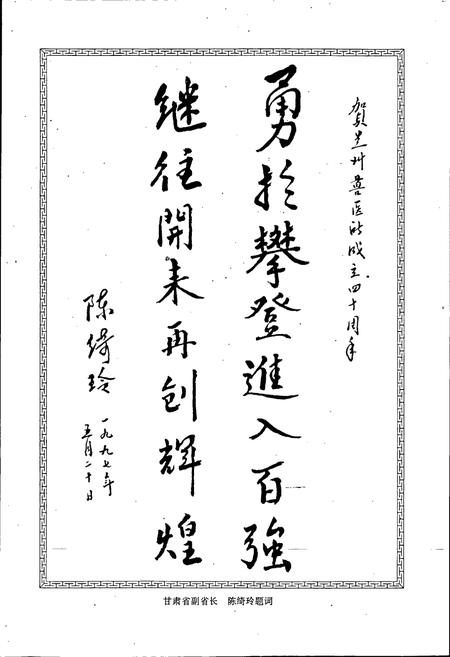 贺兰州兽医所成立四十周年
勇於攀登進入百強
继往開来再创輝煌
陈绮玲
一九九七年
五月二十日
甘肃省副省长　陈绮玲题词